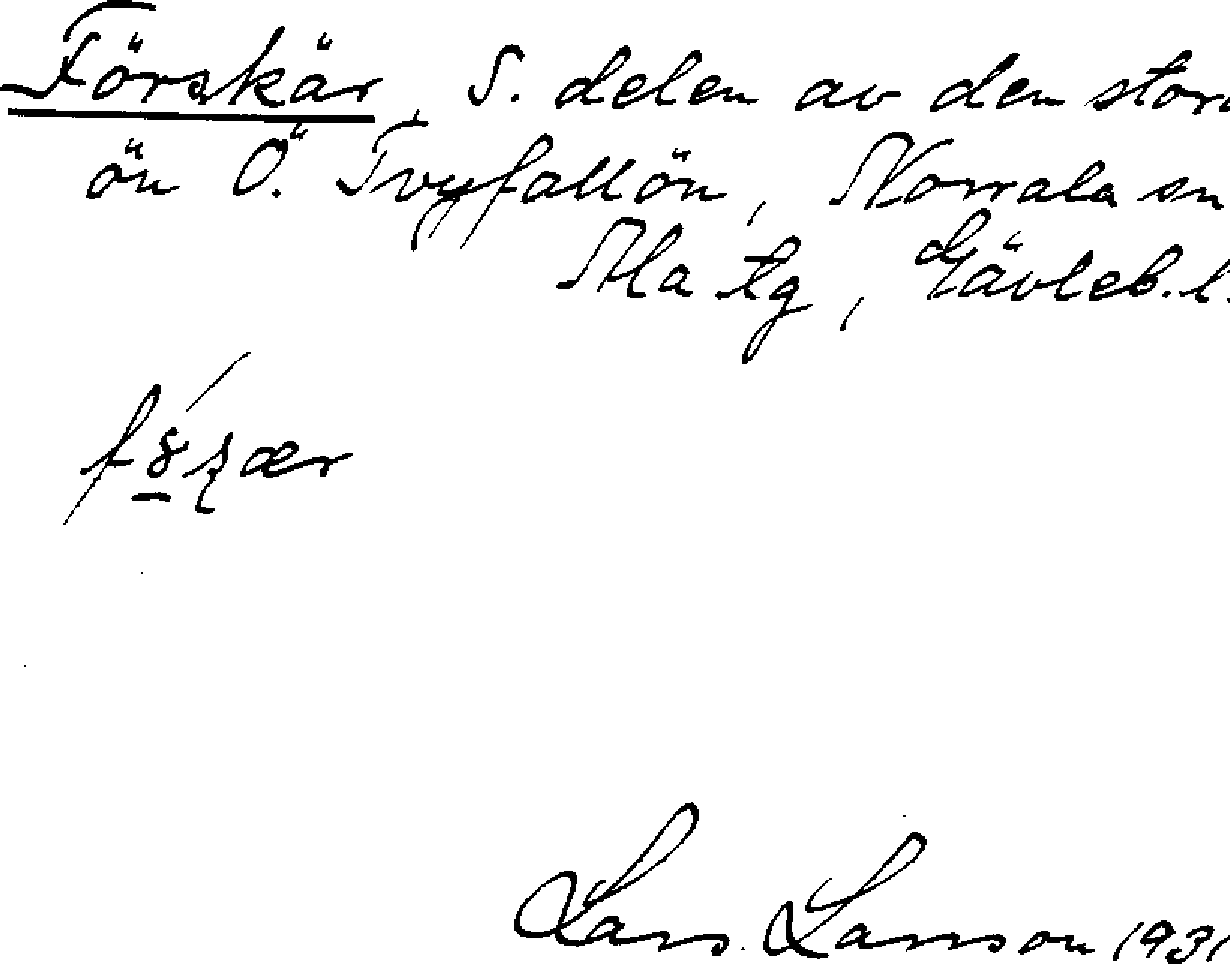 Förskär, S. delen av den stora
ön Ö. Tvyfallön, Norrala sn
Ala tg, Gävleb. l.
Lars Larsson 1931